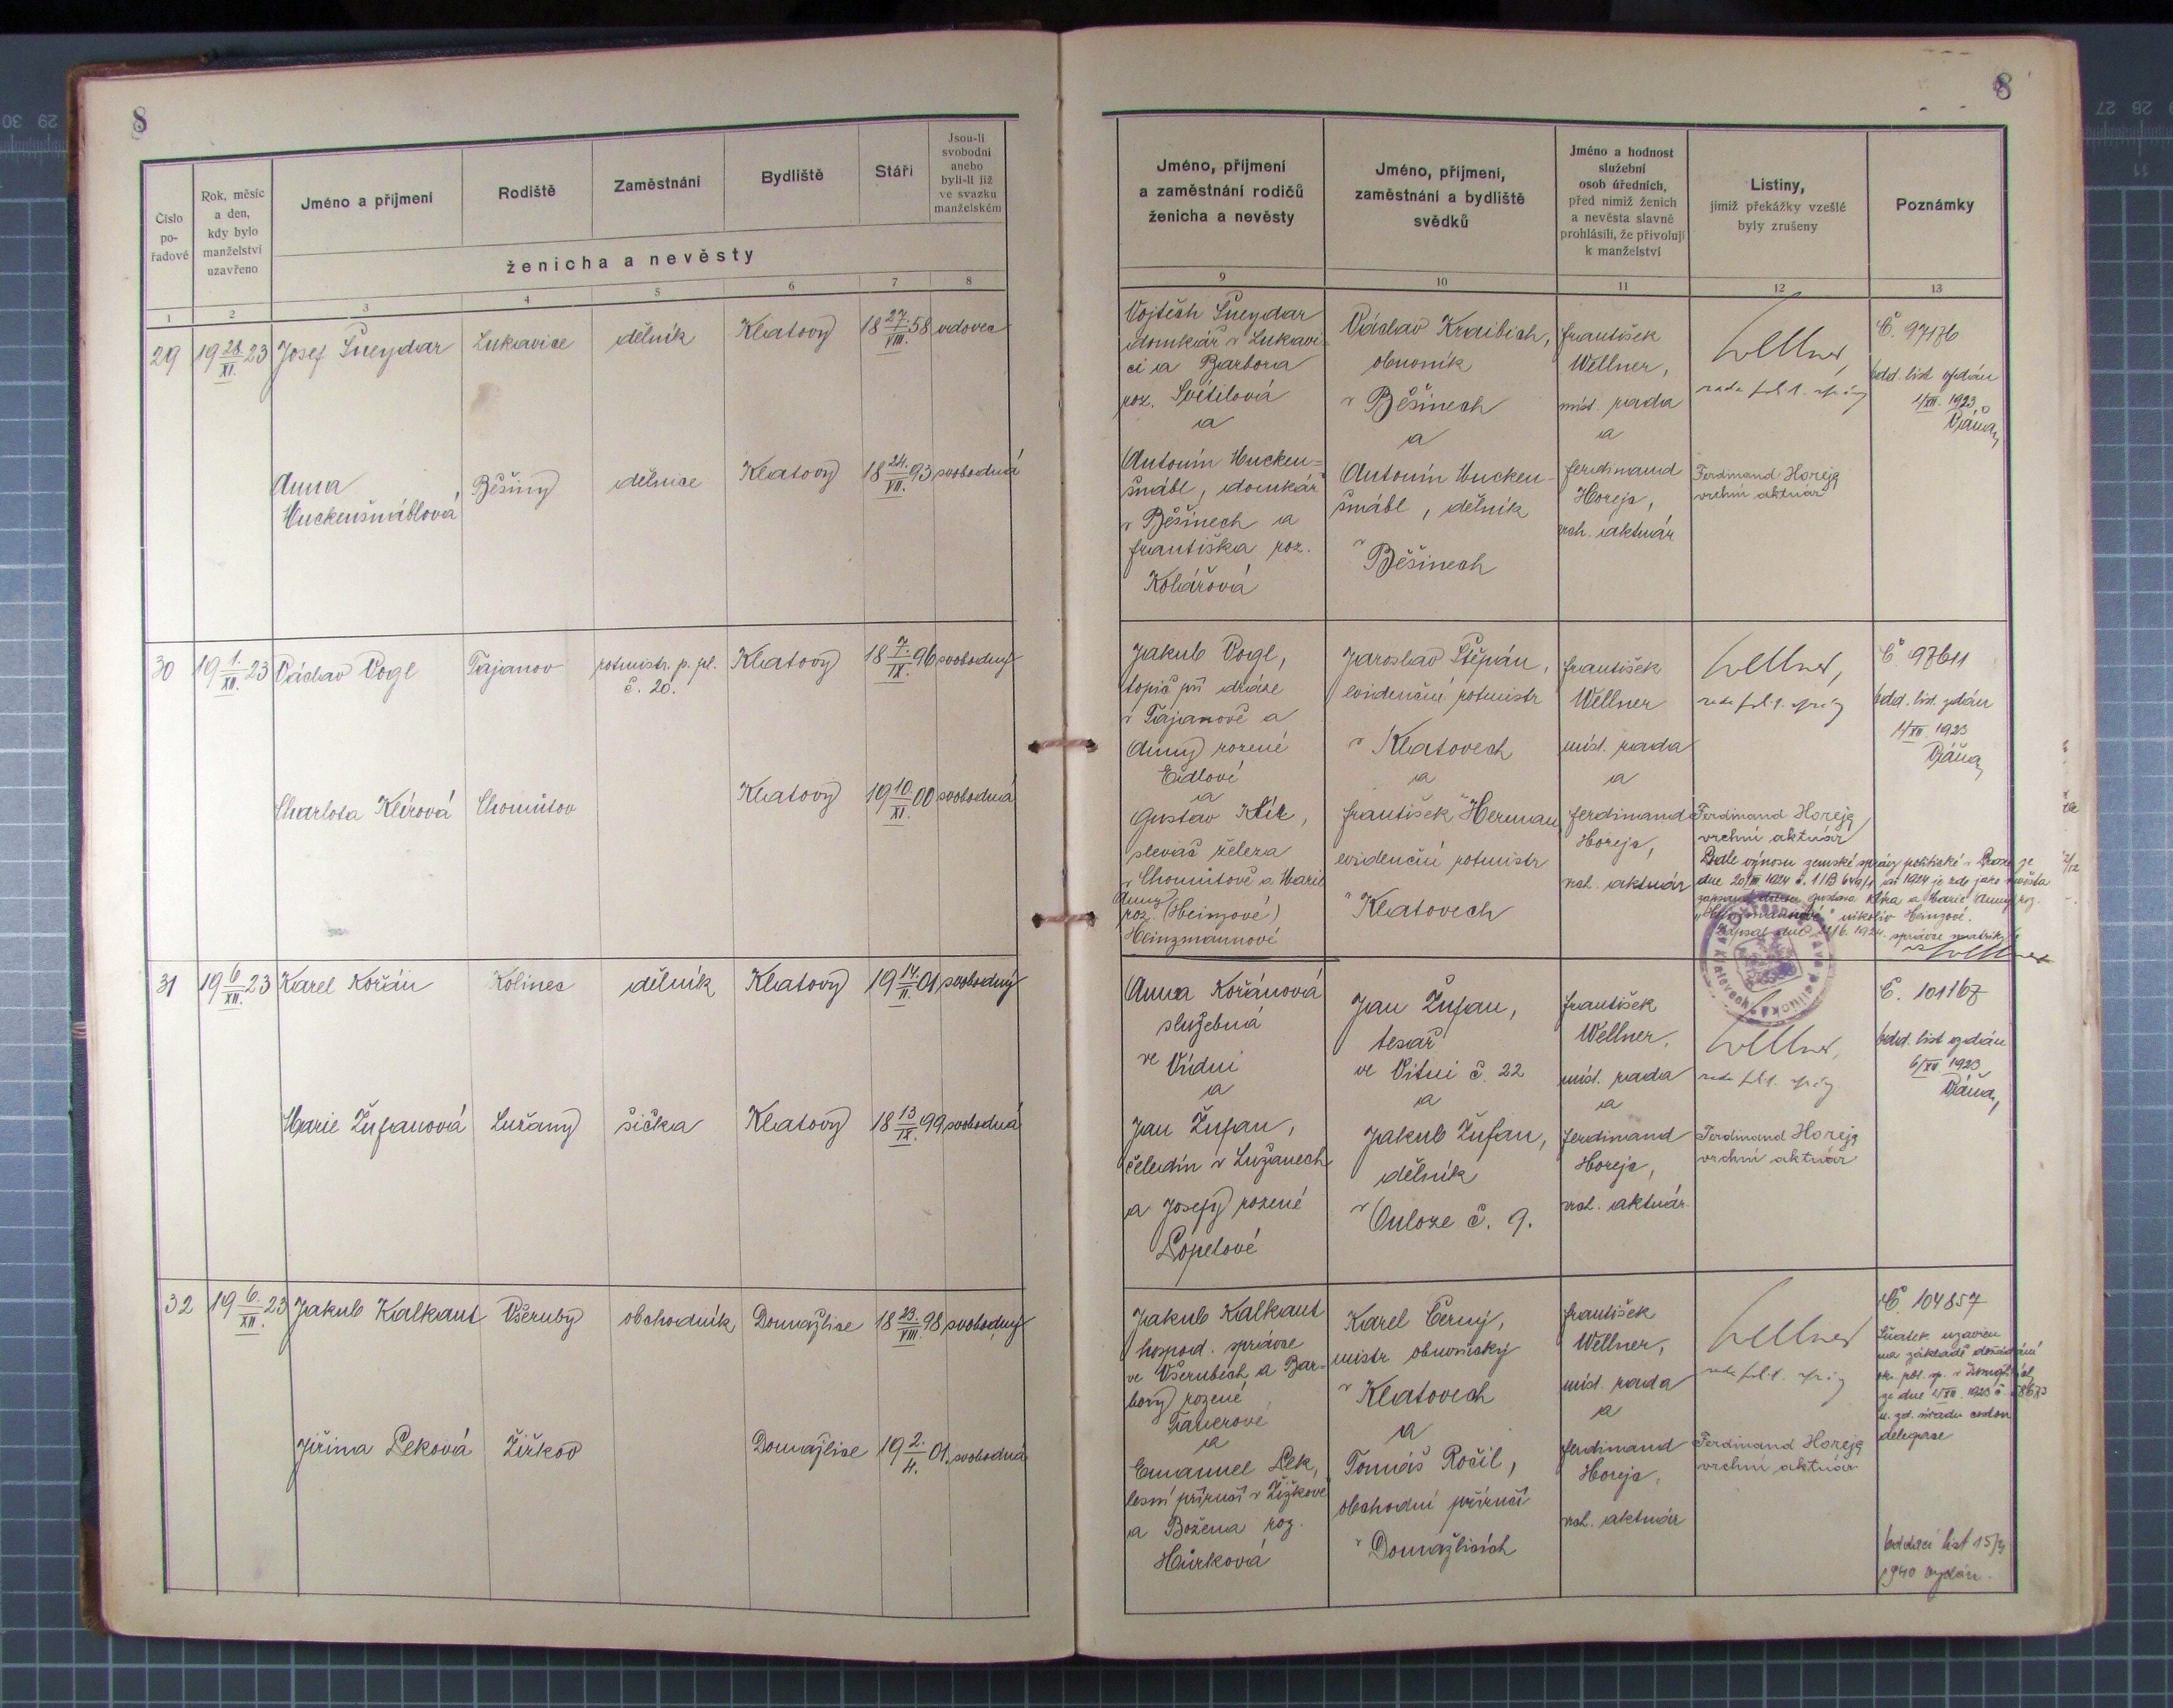 8
Číslo po-řadové
Rok, měsíc a den, kdy bylo manželství uzavřeno
Jméno a příjmení
Rodiště
Zaměstnání
Bydliště
Stáří
Jsou-li svobodni anebo byli-li již ve svazku manželském
ženicha a nevěsty
1 2 3 4 5 6 7 8
29 19 28./XI. 23 Josef Šneydar Lukavice dělník Klatovy 18 27./VIII. 58 vdovec
Anna Běšiny dělnice Klatovy 18 24./VII. 93 svobodná
Huckenšnáblová
30 19 1./XII. 23 Václav Vogl Tajanov rotmistr. p. pl. Klatovy 18 7/IX. 96 svobodný
č. 20.
Charlota Klírová Chomútov Klatovy 19 10./XI. 00 svobodná
31 19 6/XII. 23 Karel Kořán Kolinec dělník Klatovy 19 14./II. 01 svobodný
Marie Žufanová Lužany šička Klatovy 18 13/IX. 99 svobodná
32 19 6./XII. 23 Jakub Kalkant Všeruby obchodník Domažlice 18 23./VIII. 98 svobodný
Jiřina Peková Žižkov Domažlice 19 2./4. 01. svobodná
8
Jméno, příjmení
a zaměstnání rodičů
ženicha a nevěsty
Jméno, příjmení,
zaměstnání a bydliště
svědků
Jméno a hodnost
služební
osob úředních,
před nimiž ženich
a nevěsta slavně
prohlásili, že přivolují
k manželství
Listiny,
jimiž překážky vzešlé
byly zrušeny
Poznámky
9 10 11 12 13
Vojtěch Šneydar
domkář v Lukavi-
ci a Barbora
roz. Svítilová
a
Antonín Hucken=
šnábl, domkář
v Běšinech a
Františka roz.
Kolářová
Václav Kraibich,
obuvník
v Běšinech
a
Antonín Hucken-
šnábl, dělník
v
Běšinech
František
Wellner,
míst. rada
a
Ferdinand
Horeja,
vrch. aktuár
Wellner
rada pol. správy
Ferdinand Horeja
vrchní aktuár
Č. 97176
odd. list vydán
1/XII. 1923
Jakub Vogl,
topič při dráze
v Tajanově a
Anny rozené
Eidlové
a
Gustav Klír,
slevač železa
v Chomútově a Marie
Anny
roz. (Heinzové)
Heinzmannové
Jaroslav Štěpán,
evidenční rotmistr
v Klatovech
a
František Herman
evidenční rotmistr
v Klatovech
František
Wellner
míst. rada
a
Ferdinand
Horeja,
vrch. aktuár
Wellner,
rada pol. správy
Ferdinand Horeja
vrchní aktuár
Dle výnosu zemské správy politické v Praze ze
dne 20/III 1924 č. 1/B 649/1 ai 1924 je zde jako nevěsta
zapsaná dcera Gustava Klíra a Marie Anny roz.
"Heinzmannové" nikoliv Heinzové.
Zapsal dne 12/6. 1924. správce matriky
Wellner
Č. 97611
odd. list. vydán
1/XII 1923
Anna Kořánová
služebná
ve Vídni
a
Jan Žufan,
čeledín v Lužanech
a Josefy rozené
Popelové
Jan Žufan,
tesař
ve Vitni č. 22
a
Jakub Žufan,
dělník
v Onloze č. 9.
František
Wellner,
míst. rada
a
Ferdinand
Horeja,
vrch. aktuár
Wellner,
rada pol. správy
Ferdinand Horeja
vrchní aktuár
Č. 101167
odd. list vydán
6/XII 1923
Jakub Kalkant
hospod. správce
ve Všerubech a Bar-
bory rozené
Tauerové
a
Emanuel Pek,
lesní příručí v Žižkově
a Božena roz.
Hůrková
Karel Černý,
mistr obuvnický
v Klatovech
a
Tomáš Ročil,
obchodní příručí
v Domažlicích
František
Wellner,
míst. rada
a
Ferdinand
Horeja,
vrch. aktuár
Wellner
rada pol. správy
Ferdinand Horeja
vrchní aktuár
Č. 104857
Sňatek uzavřen
na základě dožádání
okr. pol. sp. v Domažlicích
ze dne 1/XII. 1923 č. 58673
delegace
oddací list 15/3
1940 vydán.